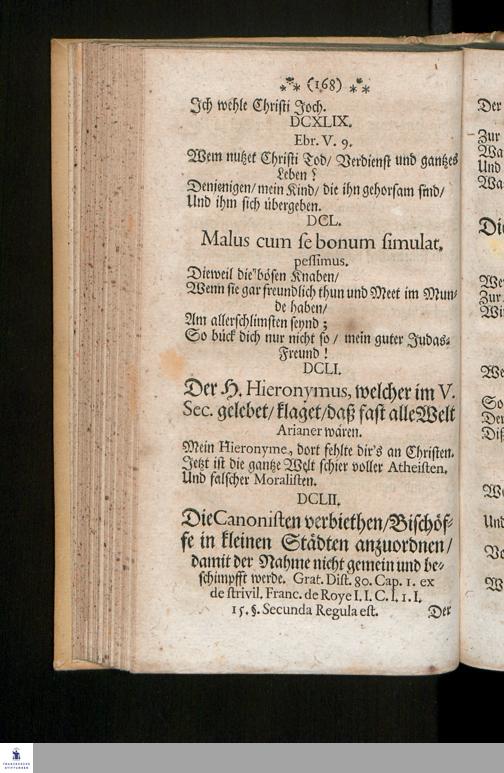 ⁂ (168) ⁂
Ich wehle Christi Joch.
DCXLIX.
Ebr. V. 9.
Wem nutzet Christi Tod/ Verdienst und gantzes
Leben?
Denjenigen/ mein Kind/ die ihn gehorsam sind/
Und ihm sich übergeben.
DCL.
Malus cum se bonum simulat,
pessimus.
Dieweil die bösen Knaben/
Wenn sie gar freundlich thun und Meet im Mun-
de haben/
Am allerschlimsten seynd;
So bück dich nur nicht so/ mein guter Judas-
Freund!
DCLI.
Der H. Hieronymus, welcher im V.
Sec. gelebet/ klaget/ daß fast alle Welt
Arianer wären.
Mein Hieronyme, dort fehlte dir's an Christen.
Jetzt ist die gantze Welt schier voller Atheisten.
Und falscher Moralisten.
DCLII.
Die Canonisten verbiethen/ Bischöf-
fe in kleinen Städten anzuordnen/
damit der Nahme nicht gemein und be-
schimpfft werde. Grat. Dist. 80. Cap. 1. ex
de strivil. Franc. de Roye I. I. C. I. 1. I.
15. §. Secunda Regula est. Der
Der
Zur
Wa
Und
Wa
Die
We
Zur
Wi
We
So
Der
Dis
We
Und
Ve
W
FRANCKESCHE
STIFTUNGEN